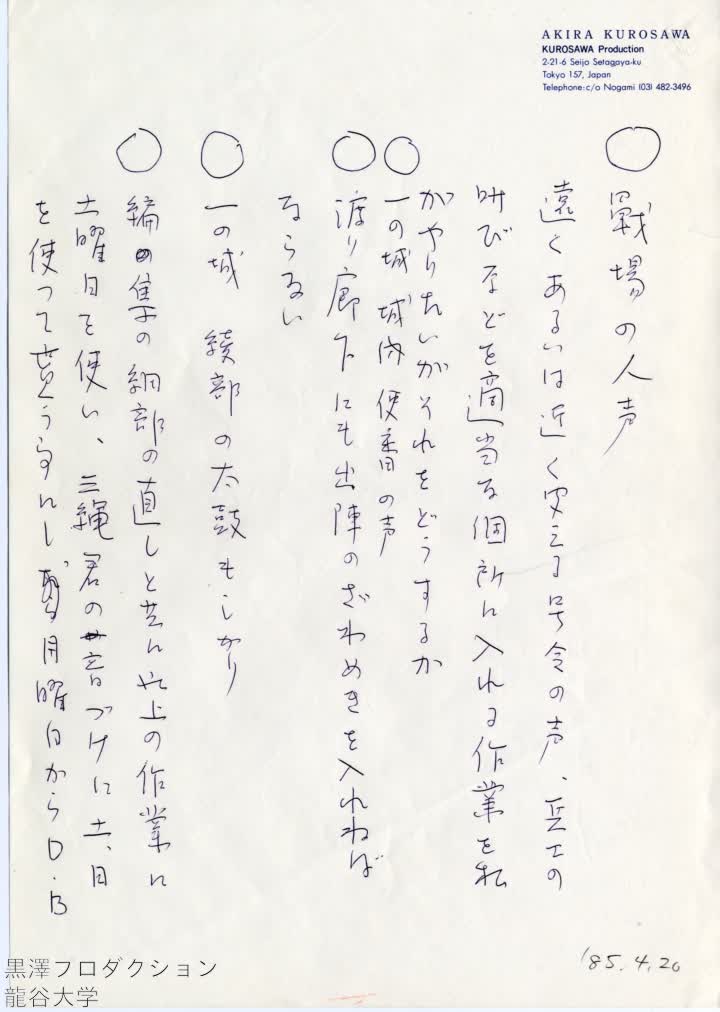 AKIRA KUROSAWA
KUROSAWA Production
2-21-6 Seijo Setagaya-ku
Tokyo 157, Japan
Telephone:c/o Nogami (03) 482-3496
戦場の人声
遠くあるいは近く聞こえる号令の声、兵士の
叫びなどを適当な個所に入れる作業を私
がやりたいがそれをどうするか
一の城 城内 使番の声
渡り廊下にも出陣のざわめきを入れねば
ならない
一の城 綾部の太鼓もしかり
編集の細部の直しと共に以上の作業に
土曜日を使い、三縄君の音づけに土、日
を使って貰う事にし 月曜日からD.B
'85.4.20
黒澤プロダクション
龍谷大学